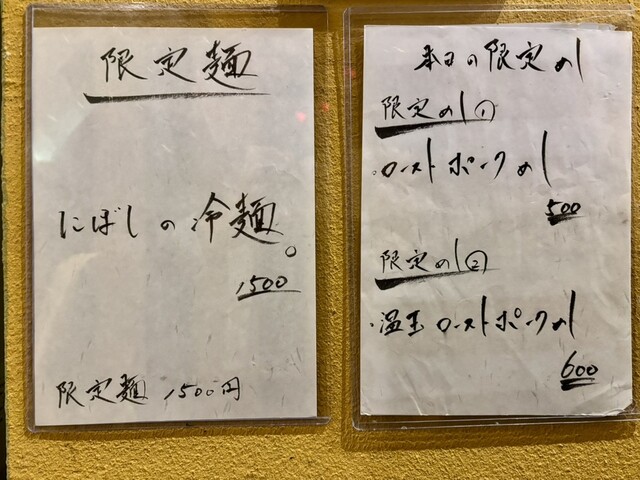 限定麺
にぼしの冷麺。
1500
限定麺 1500円
本日の限定めし
限定めし①
・ローストポークめし
500
限定めし②
・温玉ローストポークめし
600